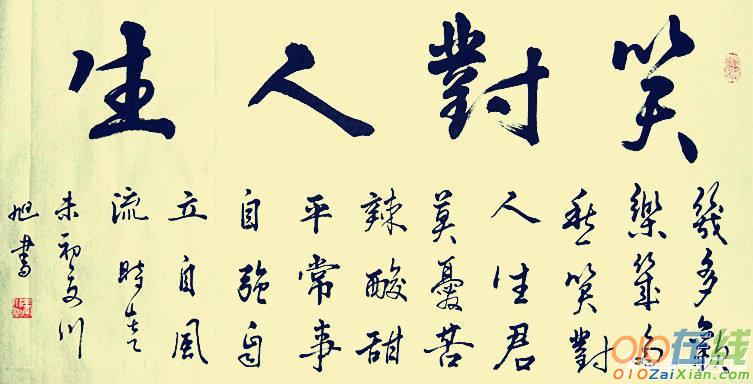 笑對人生
幾多歡
樂幾多
愁笑對
人生君
莫憂苦
辣酸甜
平常事
自強自
立自風
流時在乙
未初夏川
旭書
010在线
010ZaiXian.com